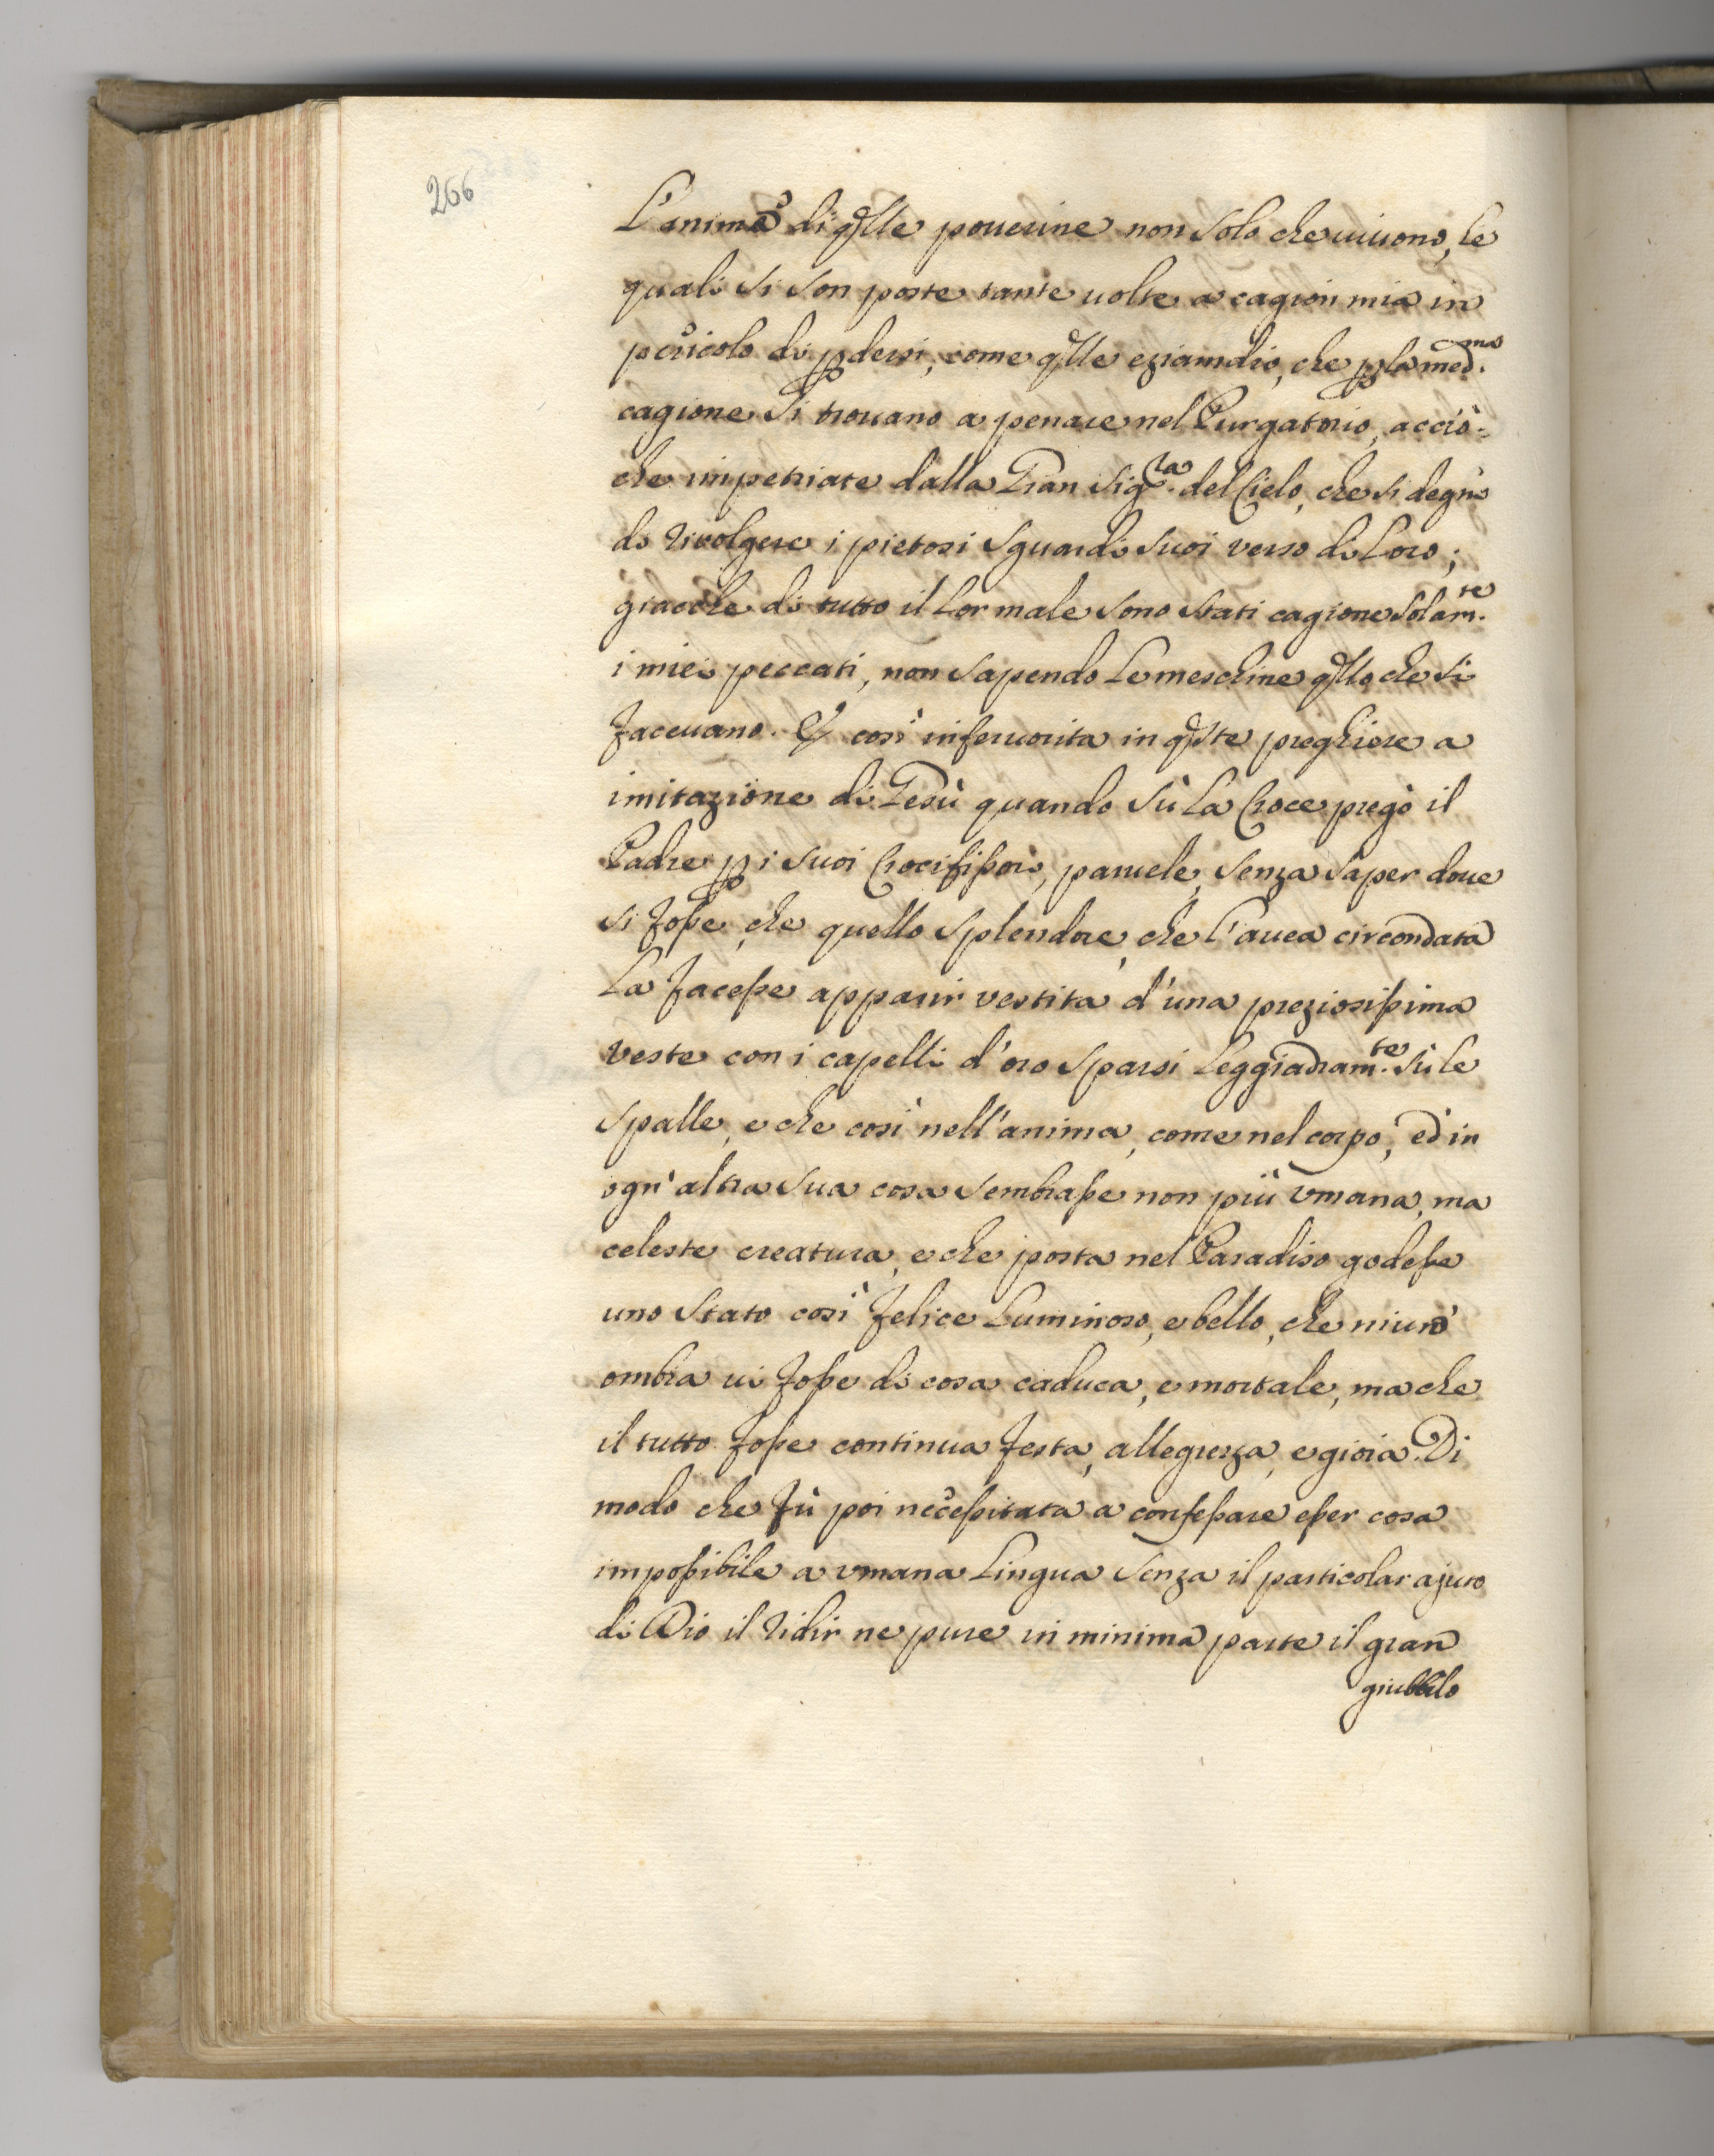 266
L'anime di qlle pouerine non solo che uiuono, le
quali si son poste tante uolte a cagion mia in
pericolo di pdersi, come qlle eziamdio, che p la med.ma
cagione si trouano a penare nel Purgatorio, acciò-
che impetriate dalla Gran Sig.ra del Cielo, che si degni
di riuolgere i pietosi sguardi suoi verso di Loro;
giacche di tutto il Lor male sono stati cagione solam.te
i miei peccati, non sapendo Le meschine qllo che si
faceuano. E così inferuorita in qste preghiere a
imitazione di Gesù quando sù La Croce pregò il
Padre p i suoi Crocifissori, paruele, senza saper doue
si fosse, che quello splendore, che l'auea circondata
La facesse apparir vestita d'una preziosissima
veste con i capelli d'oro sparsi Leggiadram.te sù le
spalle, e che così nell'anima, come nel corpo, ed in
ogn'altra sua cosa sembrasse non più vmana, ma
celeste creatura, e che posta nel Paradiso godesse
uno stato così felice Luminoso, e bello, che niuna
ombra ui fosse di cosa caduca, e mortale, ma che
il tutto fosse continua festa, allegrezza, e gioia. Di
modo che fù poi necessitata a confessare esser cosa
impossibile a vmana Lingua senza il particolar ajuto
di Dio il ridir ne pure in minima parte il gran
giubbilo